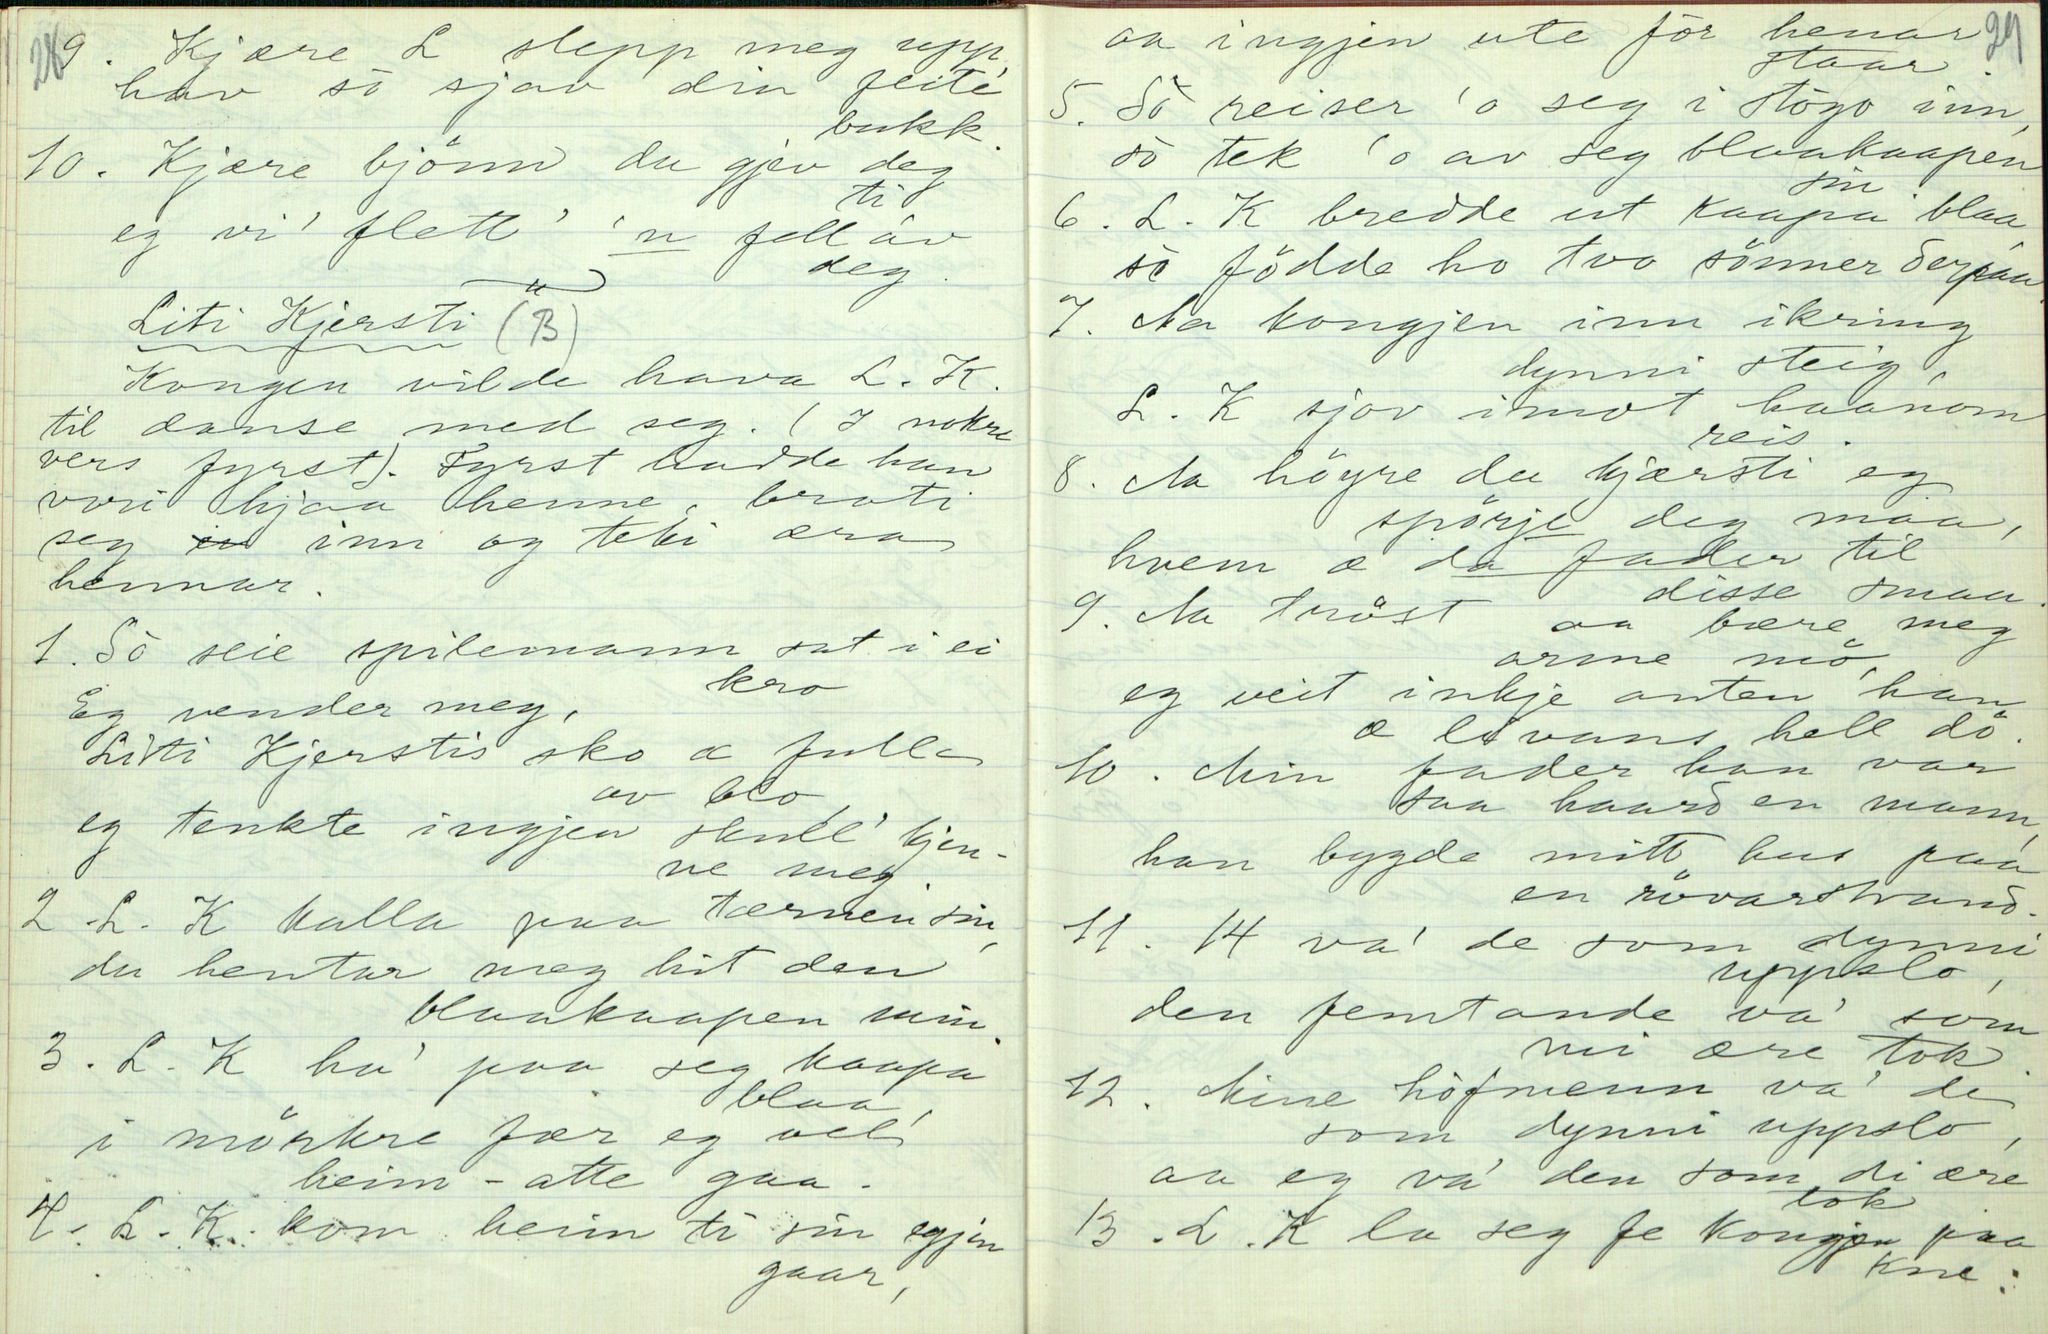 28
9. Kjære L slepp meg upp
hav so sjav din feite
bukk.
10. Kjære bjönn du gjev deg
ti
eg vi' flett' 'n fell av
deg.
Liti Kjersti (B)
Kongen vilde hava L. K.
til danse med seg. (I nokre
vers fyrst). Fyrst hadde han
vori hjaa henne, broti
seg inn og teki æra
hennar.
1. So seie spilemann sat i ei
kro
Eg vender meg,
Liti Kjerstis sko æ fulle
av blo,
eg tenkte ingjen skull' kjen-
ne meg.
2 L. K kalla paa tærnen sin,
du hentar meg hit den
blaakaapen min.
3. L. K ha' paa seg kaapa
blaa,
i mörkre fær eg vel
heim-atte gaa.
4. L. K. kom heim ti sin egjen
gaar,
29
aa ingjen ute för henar
staar.
5. So reiser 'o seg i stögo inn,
so tek 'o av seg blaakaapen
sin
6. L. K bredde ut kaapa blaa
so födde ho tvo sönner derpaa.
7. Aa kongjen inn ikring
dynni steig,
L. K sjov imot haanom
reis.
8. Aa höyre du kjærsti eg
spörje deg maa,
hvem æ da fader til
disse smaa.
9. Aa tröst aa bære meg
arme mö,
eg veit inkje anten han
æ livans hell dö.
10. Min fader han var
saa haard en mann,
han bygde mitt hus paa
en rövarstrand.
11. 14 va' de som dynni
uppslo,
den femtande va' som
mi ære tok.
12. Mine höfmenn va' de
som dynni uppslo,
aa eg va' den som di ære
tok
13. L. K la seg fe kongjen paa
kne: